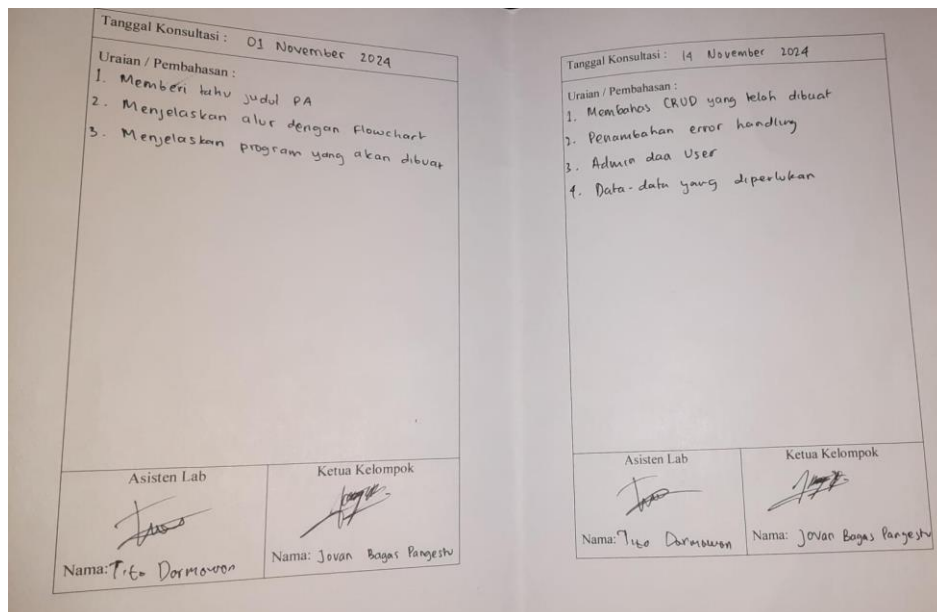 Tanggal Konsultasi : 01 November 2024
Uraian / Pembahasan :
1. Memberi tahu judul PA
2. Menjelaskan alur dengan Flowchart
3. Menjelaskan program yang akan dibuat
Asisten Lab
Ketua Kelompok
Nama: Tito Darmowon
Nama: Jovan Bagas Pangestu
Tanggal Konsultasi : 14 November 2024
Uraian / Pembahasan :
1. Membahas CRUD yang telah dibuat
2. Penambahan error handling
3. Admin daa User
4. Data-data yang diperlukan
Asisten Lab
Ketua Kelompok
Nama: Tito Darmowon
Nama: Jovan Bagas Pangestu